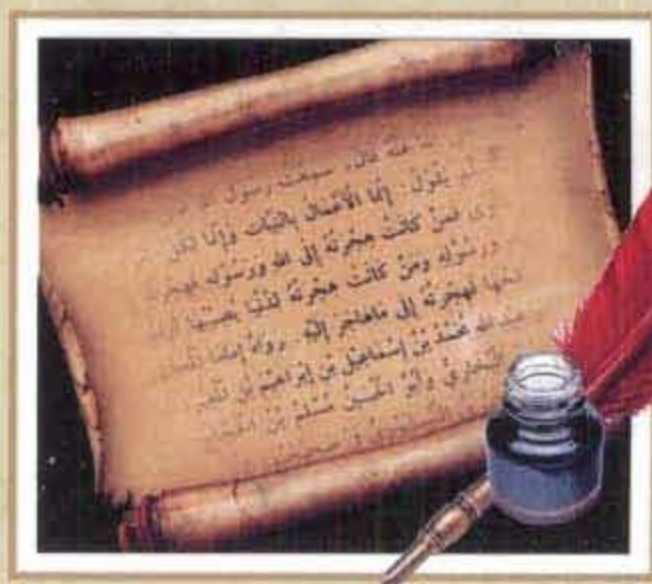 عنه قال: سمعت رسول
يَقُولُ: إِنَّمَا الْأَعْمَالُ بِالنِّيَّاتِ وَإِنَّمَا لِكُلِّ
فَمَنْ كَانَتْ هِجْرَتُهُ إِلَى الله وَرَسُولِهِ فَهِجْرَتُهُ
وَرَسُوْلِهِ وَمَنْ كَانَتْ هِجْرَتُهُ لِدُنْيَا يُصِيْبُهَا
فَهِجْرَتُهُ إِلَى مَا هَاجَرَ إِلَيْهِ. رَوَاهُ إِمَامَا
الله مُحَمَّدُ بْنُ إِسْمَاعِيْل بن إِبْرَاهِيْم بن
الْبُخَارِيُّ وَأَبُو الْحُسَيْنِ مُسْلِمُ بْنُ